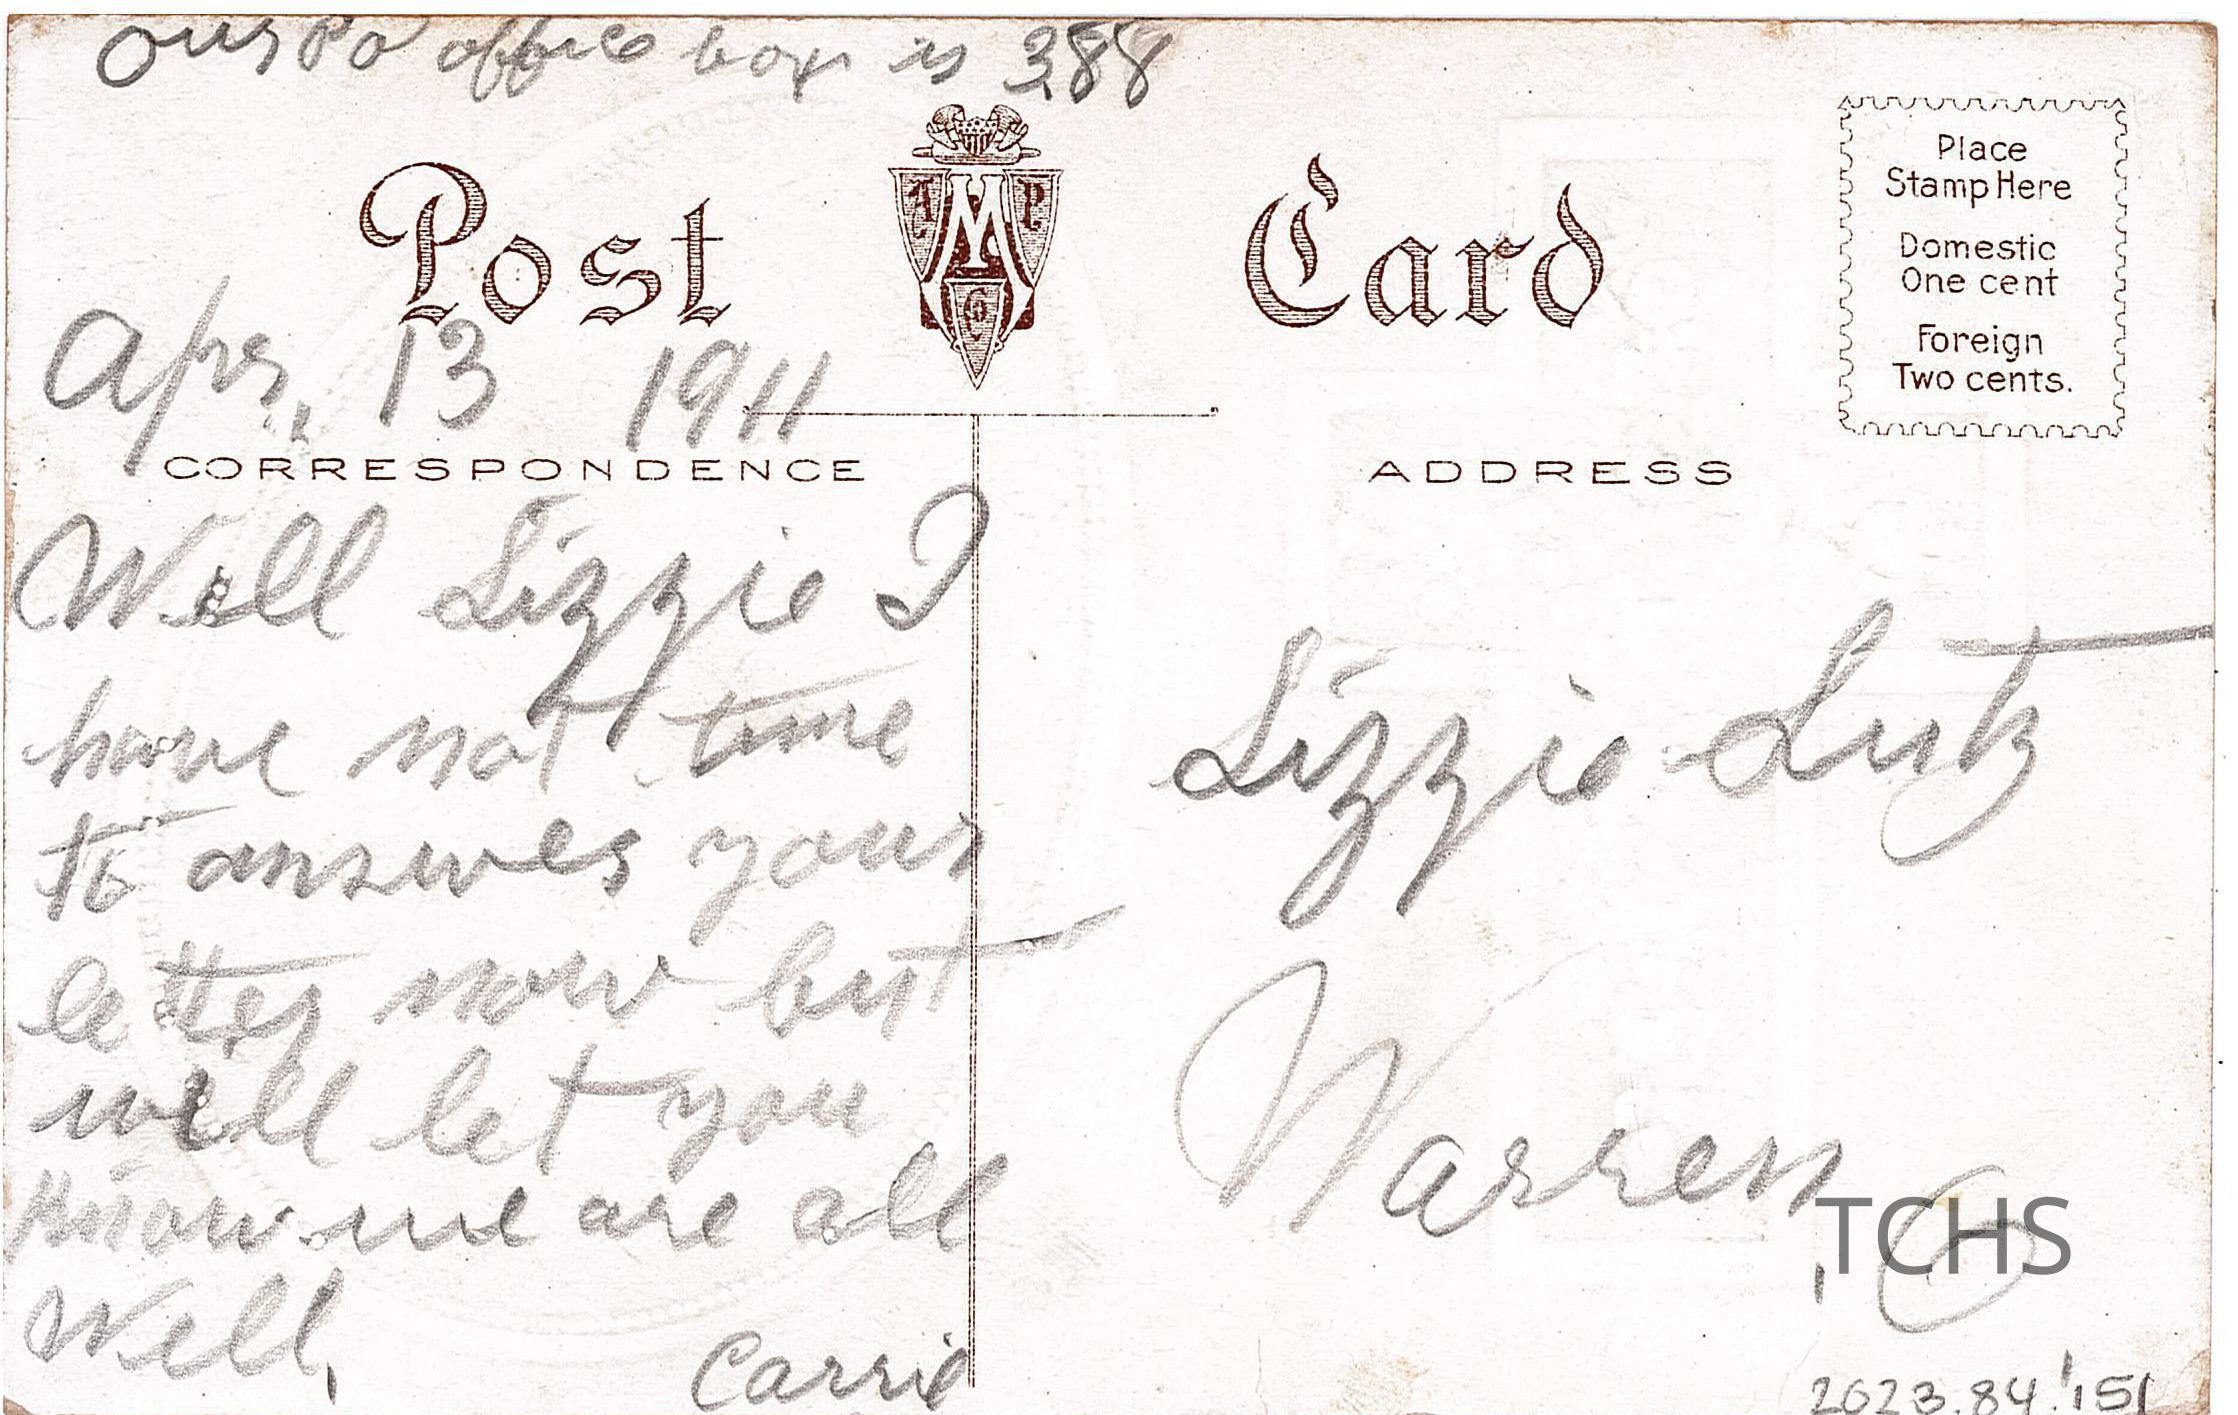 Our Po office box is 388
Post Card
A M P C
Place
Stamp Here
Domestic
One cent
Foreign
Two cents.
Apr, 13 1911
CORRESPONDENCE
Well Lizzie I
have not time
to answer your
letter now but
will let you
Know we are all
Well,
Carrie
ADDRESS
Lizzie Lutz
Warren, O
TCHS
2023.84.151